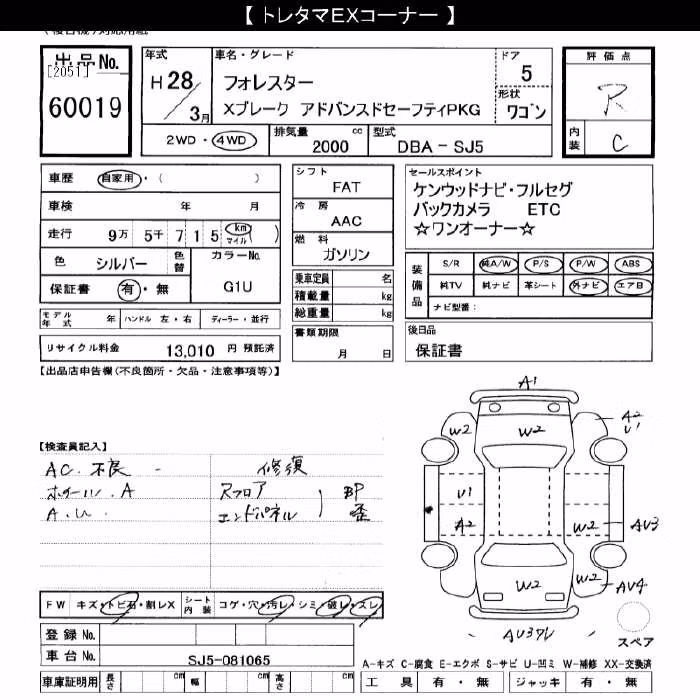 【 トレタマEXコーナー 】
出品No.
[2051]
60019
年式
H28/3月
車名・グレード
フォレスター
Xブレーク アドバンスドセーフティPKG
ドア
5
形状
ワゴン
評価点
R
内装
C
2WD・4WD
排気量 cc
2000
型式
DBA－SJ5
車歴 自家用・( )
車検 年 月
走行 9万 5千 7 1 5 km マイル )
色 シルバー 色替
カラーNo.
G1U
保証書 有・無
モデル年式 年 ハンドル 左・右 ディーラー・並行
リサイクル料金 13,010 円 預託済
シフト
FAT
冷房
AAC
燃料
ガソリン
乗車定員 名
積載量 kg
総重量 kg
書類期限
月 日
セールスポイント
ケンウッドナビ・フルセグ
バックカメラ ETC
☆ワンオーナー☆
装備品
S/R 純A/W P/S P/W ABS
純TV 純ナビ 革シート 外ナビ エアB
ナビ型番:
後日品
保証書
【出品店申告欄(不良箇所・欠品・注意事項等)】
【検査員記入】
AC.不良 - 修復
ホイール.A Rフロア BP
A.U エンドパネル 歪
A1
W2
W2
A2
U1
U1
A2
W2
AU3
W2
W2
AU4
AU37U
スペア
FW キズ・トビ石・割レX シート内装 コゲ・穴・汚レ・シミ・破レ・スレ
登録No.
車台No. SJ5-081065
車庫証明用 長さ cm 幅 cm 高さ cm
A-キズ C-腐食 E-エクボ S-サビ U-凹ミ W-補修 XX-交換済
工具 有・無 ジャッキ 有・無